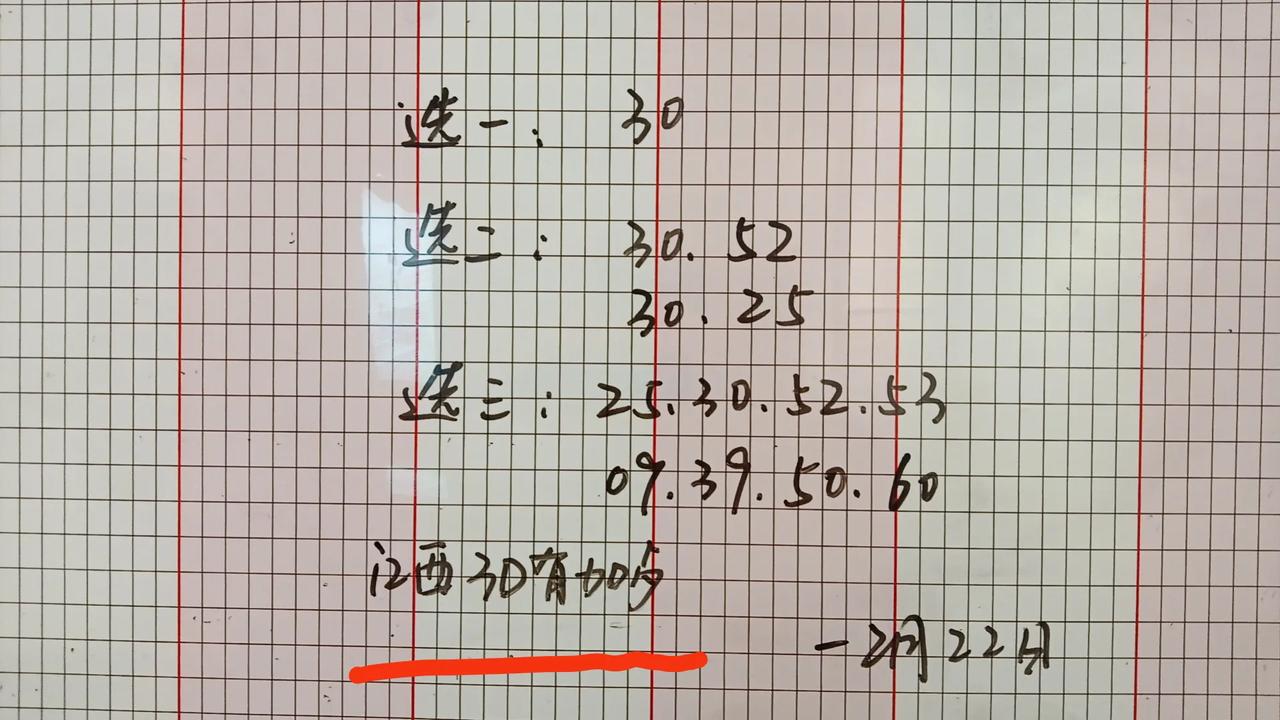 选一: 30
选二: 30. 52
30. 25
选三: 25. 30. 52. 53
09. 39. 50. 60
江西3D有加奖
-2月22日